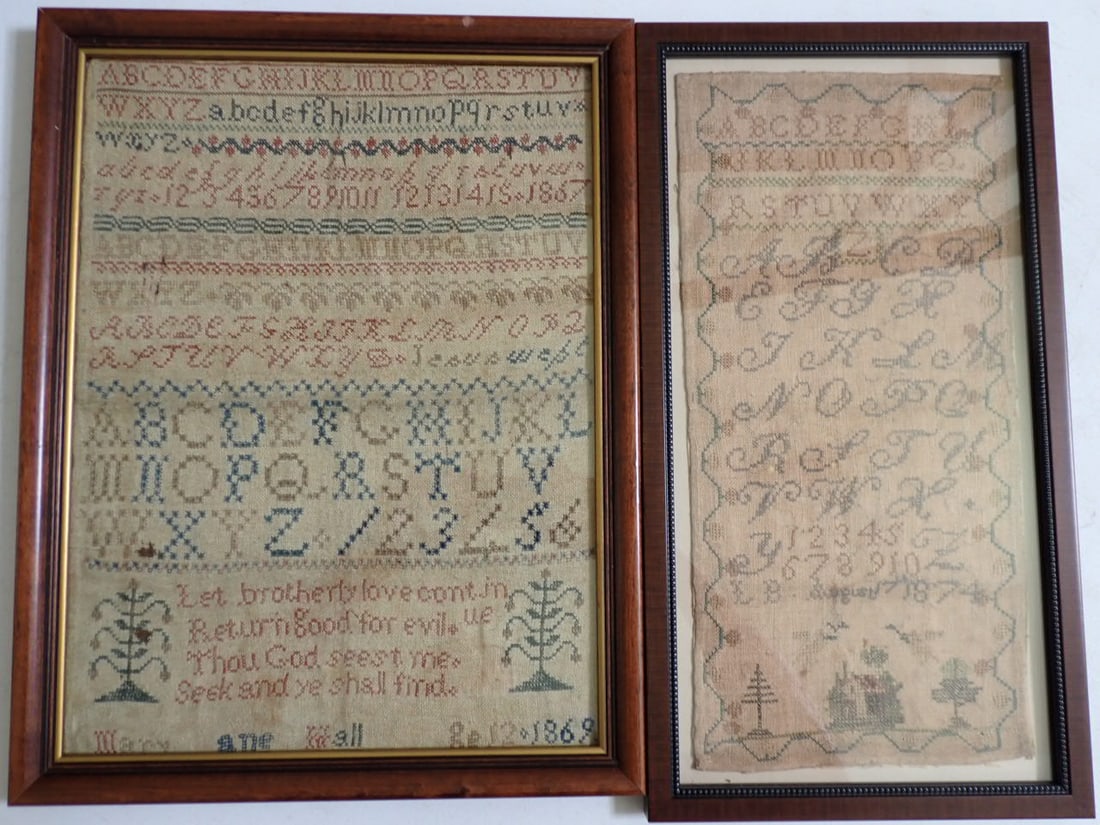 ABCDEFGHIJKLMNOPQRSTUV
WXYZ abcdefghijklmnopqrstuv
wxyz
abcdefghijklmnopqrstuvw
xyz 12345678910 11 12 13 14 15 1867
ABCDEFGHIJKLMNOPQRSTUV
WXYZ
ABCDEFGHIJKLMNOPQ
RSTUVWXYZ Jesus wept
ABCDEFGHIJKL
MNOPQRSTUV
WXYZ 123456
Let brotherly love contin
ue
Return good for evil.
Thou God seest me.
Seek and ye shall find.
Mary ane Hall ge 12 1869
ABCDEFGHI
JKLMNOPQ
RSTUVWXY
Z
A B C D
E F G H
I K L M
N O P Q
R S T U
V W X
Y 12345 Z
678910
August 1874